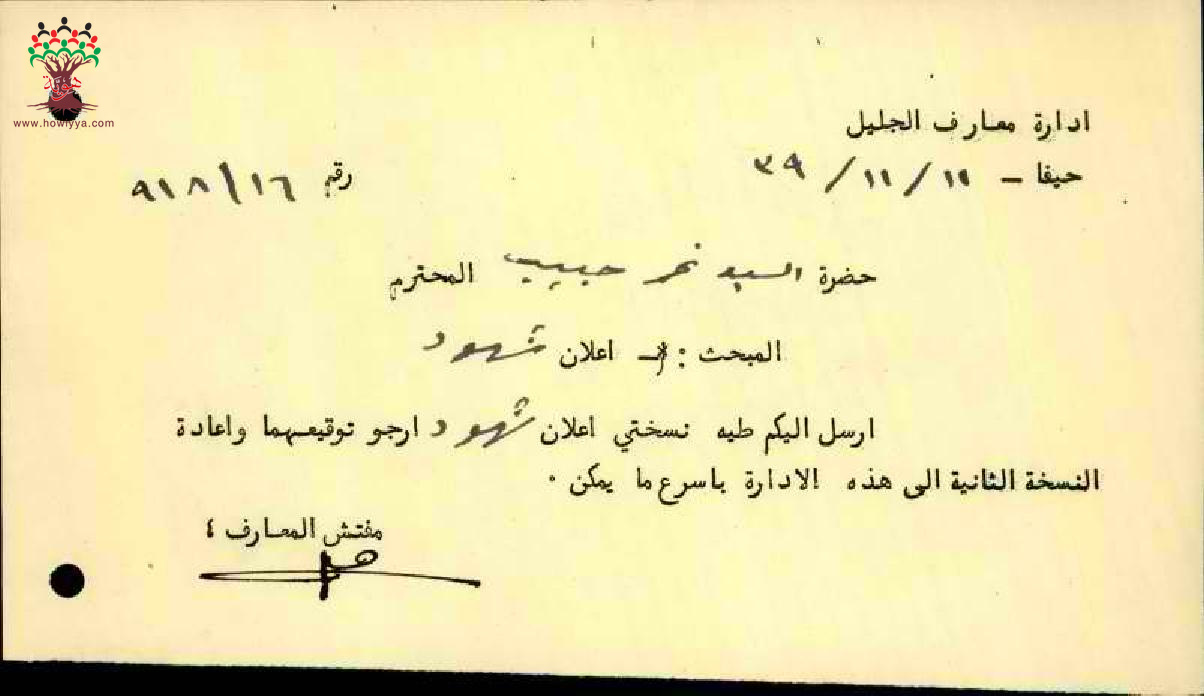 هوية
www.howiyya.com
ادارة معارف الجليل
حيفا – ١١ / ١١ / ٣٩
رقم ٩١٨/١٦
حضرة السيد نمر حبيب المحترم
المبحث : – اعلان شهود
ارسل اليكم طيه نسختي اعلان شهود ارجو توقيعهما واعادة
النسخة الثانية الى هذه الادارة باسرع ما يمكن ٠
مفتش المعارف ٤